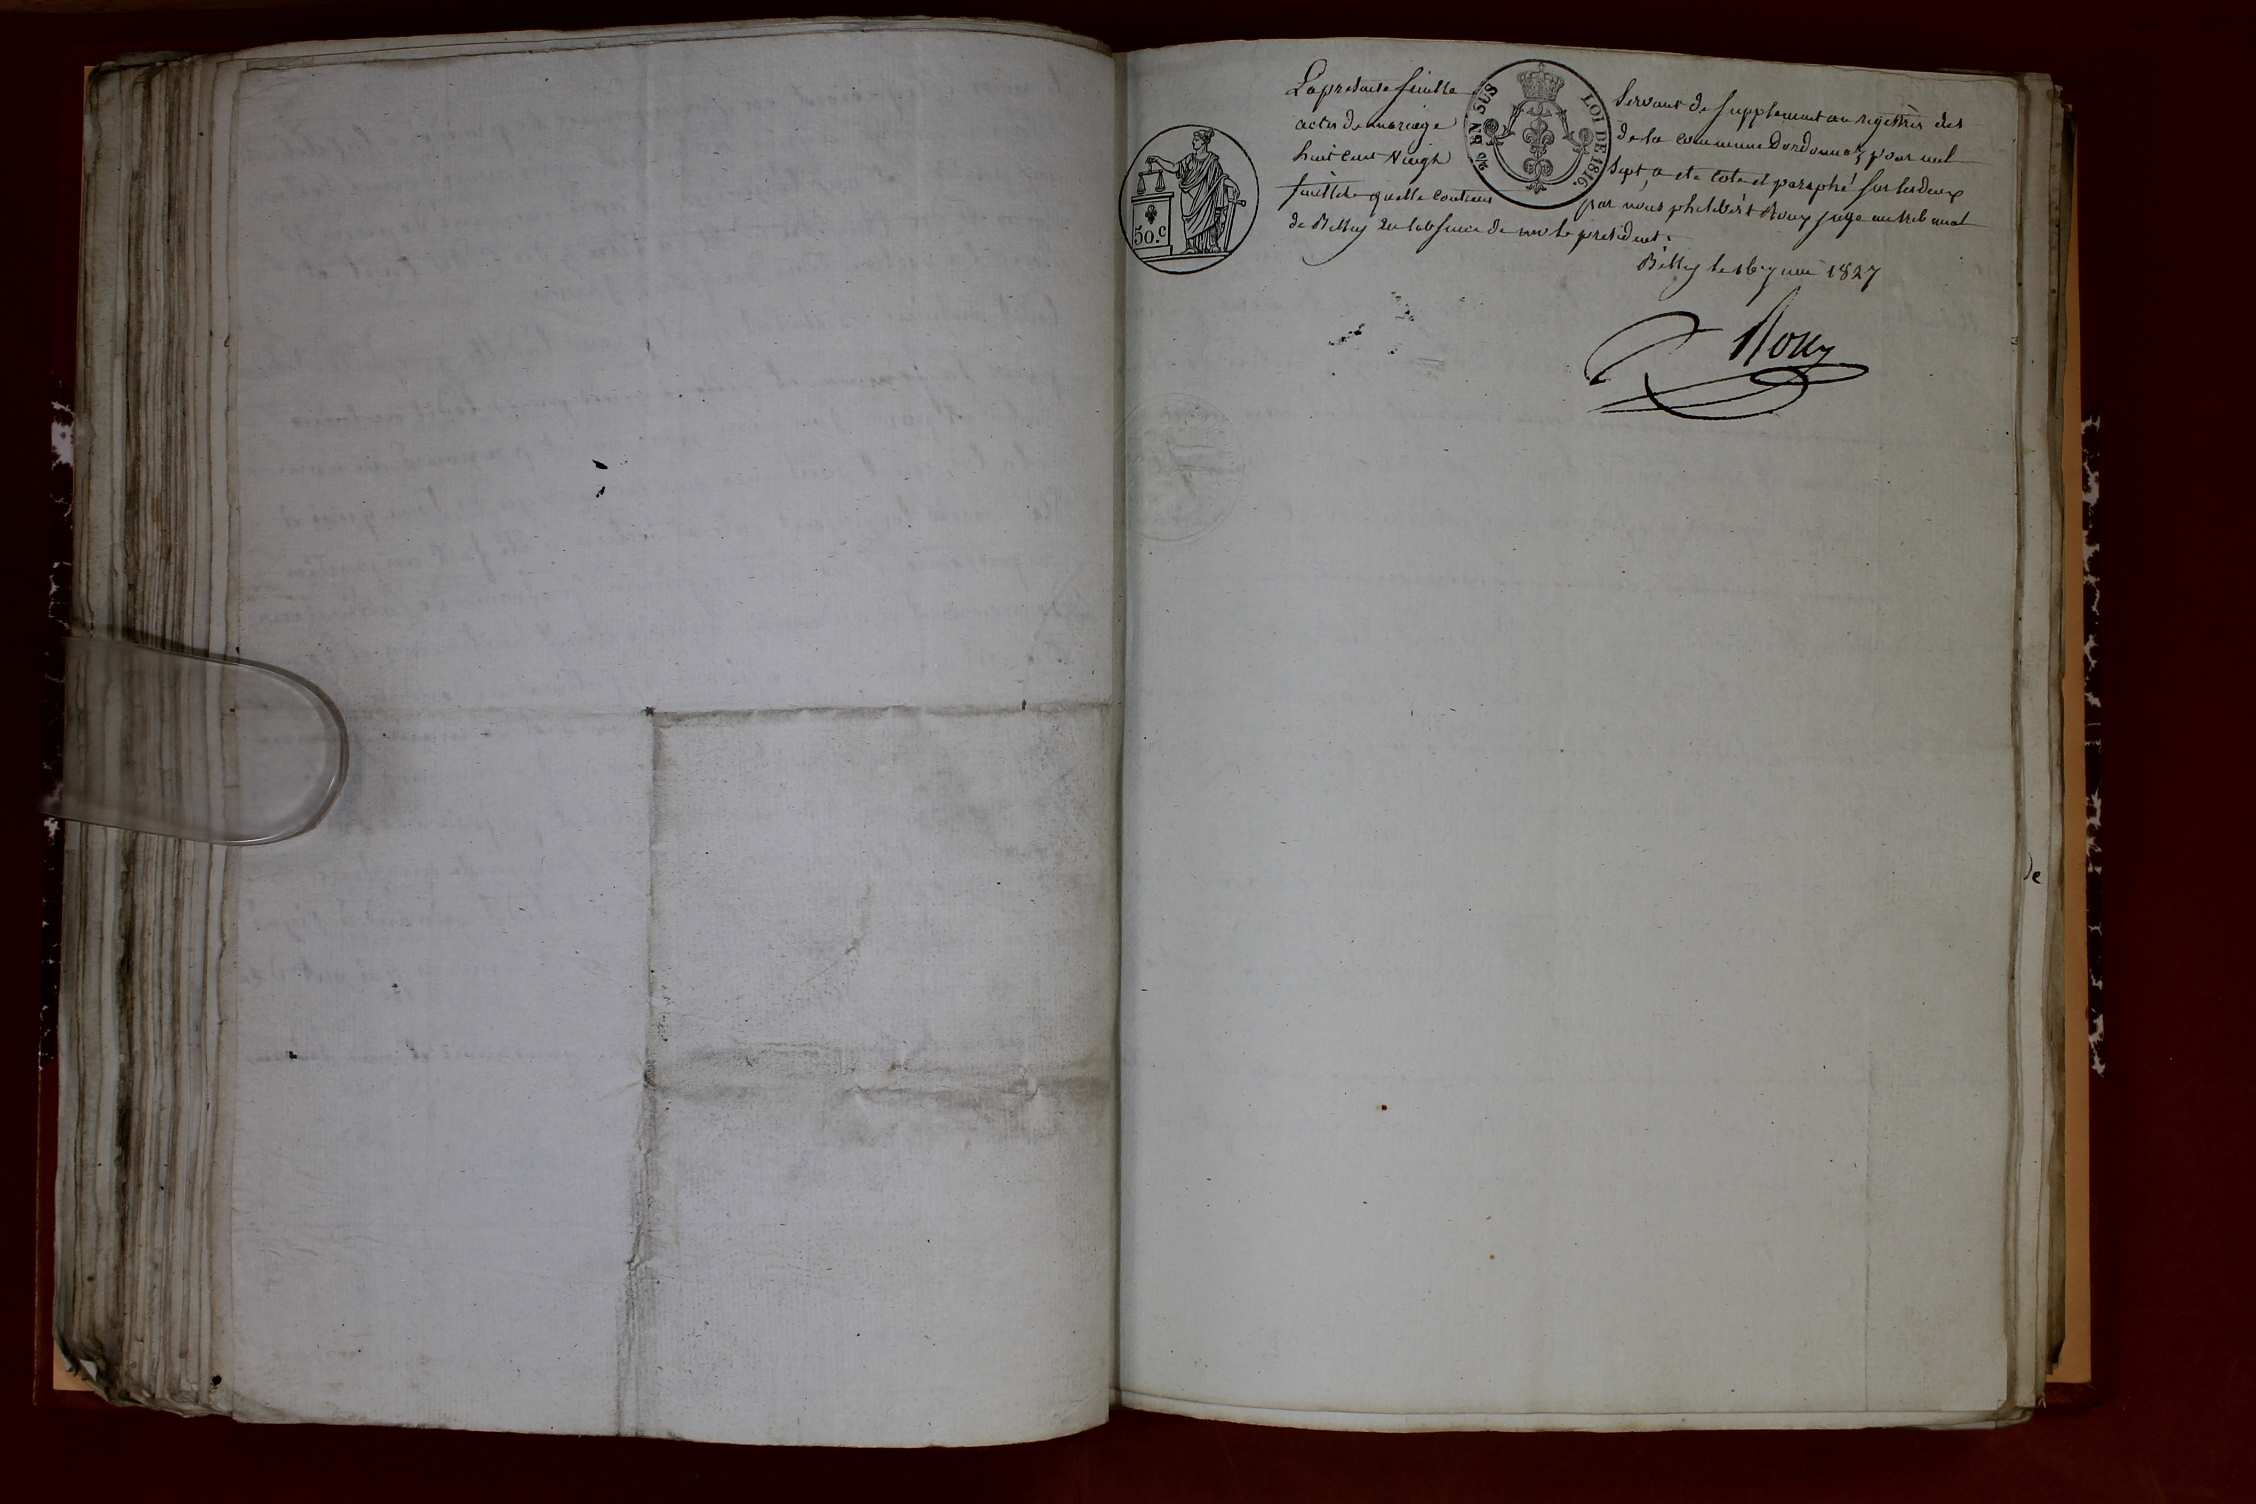 La presente feuille servant de supplement au registres des
actes de mariage de la commune Dordonnaz pour mil
huit cent vingt sept, a ete coté et paraphé sur les deux
feuillets quelle contient par nous philibert Roux juge au tribunal
de Belley en labsence de mr le president.
Belley le 16 juin 1827
Roux
50.c
25 EN SUS
LOI DE 1816.
de